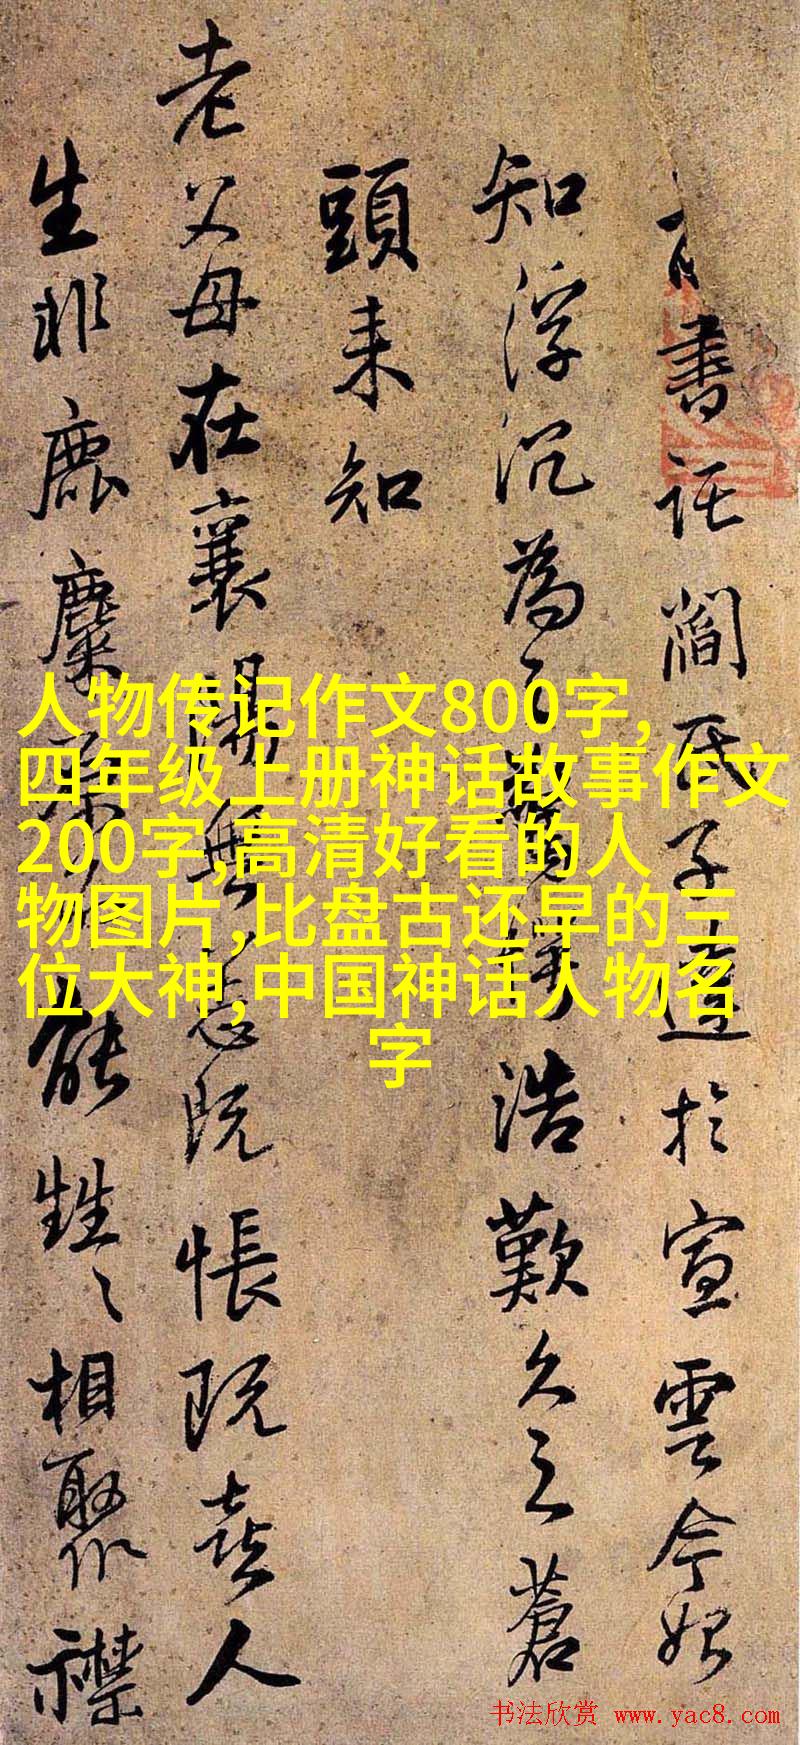 書託閻氏子於宣雲今始
知浮沉為浩歎久之蒼
頭来知
老父母在襄陽無恙既悵既喜人
生非鹿麋能甡〻相聚襟
人物传记作文800字,
四年级上册神话故事作文
200字,高清好看的人
物图片,比盘古还早的三
位大神,中国神话人物名
字
书法欣赏 www.yac8.com